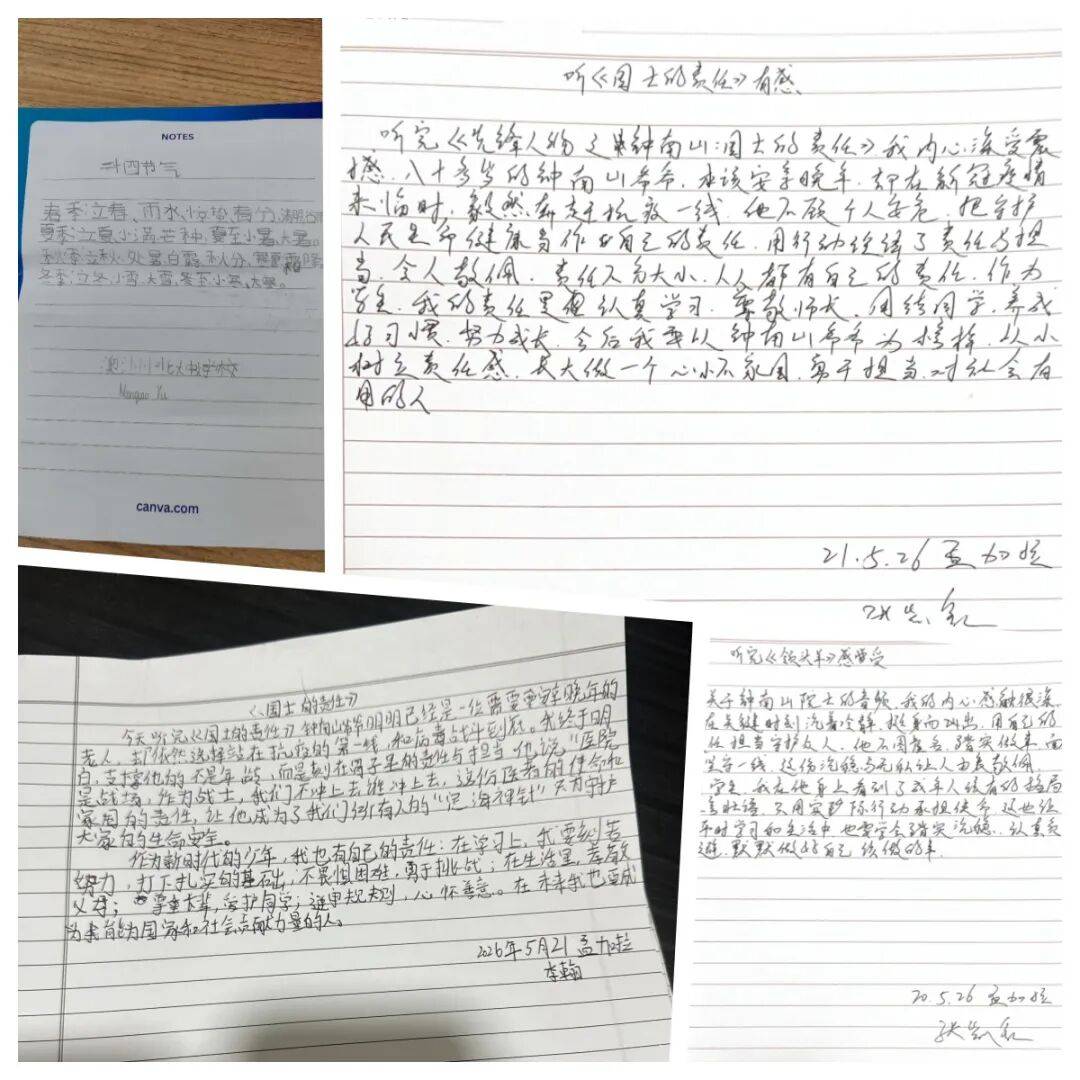 NOTES
二十四节气
春季立春、雨水、惊蛰、春分、清明谷雨
夏季立夏小满芒种、夏至小暑、大暑。
秋季立秋、处暑白露、秋分、寒露霜降
冬季立冬、小雪、大雪、冬至小寒、大寒。
Mingao Xu
canva.com
听《国士的责任》有感
听完《先锋人物之钟南山:国士的责任》我内心深受震
撼。八十多岁的钟南山爷爷.本该安享晚年.却在新冠疫情
来临时,毅然奔赴抗疫一线.他不顾个人安危.把守护
人民生命健康当作自己的责任.用行动诠释了责任与担
当.令人敬佩.责任不分大小.人人都有自己的责任.作为
学生.我的责任是认真学习.尊敬师长.团结同学.养成
好习惯.努力成长.今后我要以钟南山爷爷为榜样.从小
树立责任感.长大做一个心怀家国.勇于担当.对社会有
用的人
21.5.26 孟加拉
《国士的责任》
今天听完《国士的责任》钟南山爷爷明明已经是一位需要安享晚年的
老人,却依然选择站在抗疫的第一线,和病毒战斗到底。我终于明
白,支撑他的不是年龄,而是刻在骨子里的责任与担当。他说"医院
是战场,作为战士,我们不冲上去谁冲上去,这份医者的使命和
家国的责任,让他成为了我们所有人的"定海神针"只为守护
大家的生命安全。
作为新时代的少年,我也有自己的责任:在学习上,我要刻苦
努力,打下扎实的基础,不畏惧困难,勇于挑战;在生活里,孝敬
父母;尊重长辈,爱护同学;遵守规则,心怀善意。在未来我也要成
为能为国家和社会贡献力量的人。
2026年5月21 孟加拉
李翰
听完《领头羊》感受
关于钟南山院士的音频.我的内心感触很深
在关键时刻沉着冷静.挺身而出.用自己的
担当守护众人.他不图虚名.踏实做事.
一线.这份沉稳与无私让人由衷敬佩.
学生.我在他身上看到了成年人该有的格局
平时学习和生活中.也要学会踏实沉稳.认真负
默默做好自己该做的事.
20.5.26 孟加拉